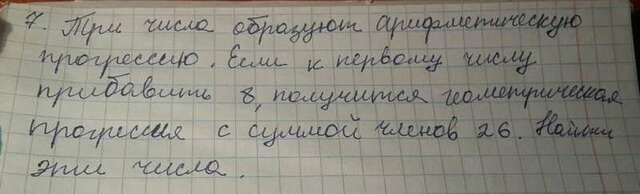 7. Три числа образуют арифметическую
прогрессию. Если к первому числу
прибавить 8, получится геометрическая
прогрессия с суммой членов 26. Найти
эти числа.